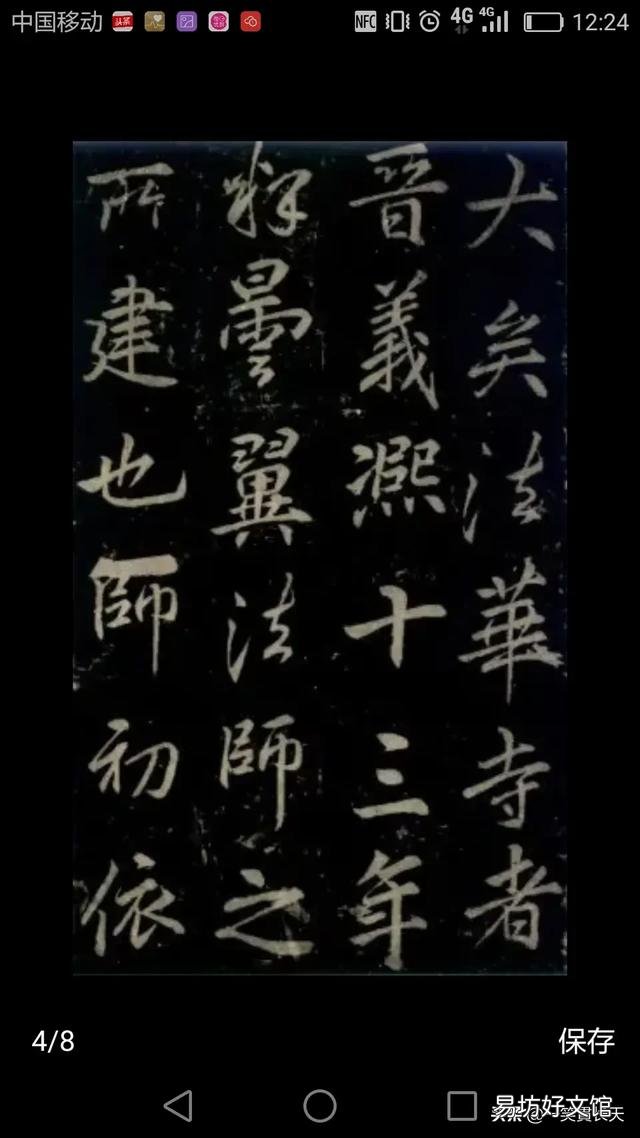 中国移动 头条 NFC 4G 4G 12:24
大矣法華寺者
晉義熈十三年
釋曇翼法師之
所建也師初依
4/8 保存
易坊好文馆
头条@一笑貫长天